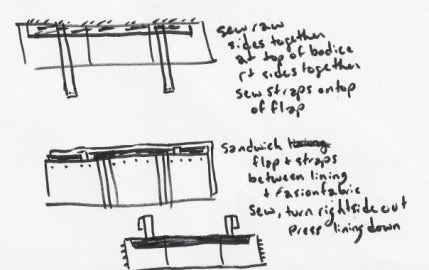 sew raw
sides together
at top of bodice
rt sides together
sew straps on top
of flap
sandwich
flap + straps
between lining
+ fasion fabric
Sew, turn rightside out
Press lining down